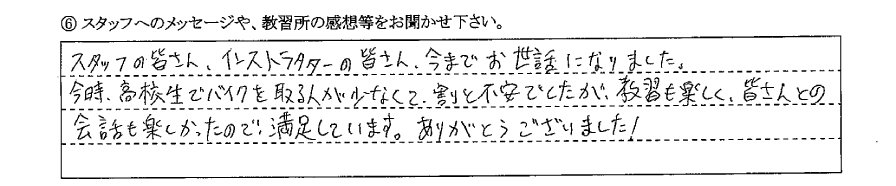 ⑥ スタッフへのメッセージや、教習所の感想等をお聞かせ下さい。
スタッフの皆さん、インストラクターの皆さん、今までお世話になりました。
今時、高校生でバイクを取る人が少なくて、割りと不安でしたが、教習も楽しく、皆さんとの
会話も楽しかったので、満足しています。ありがとうございました!